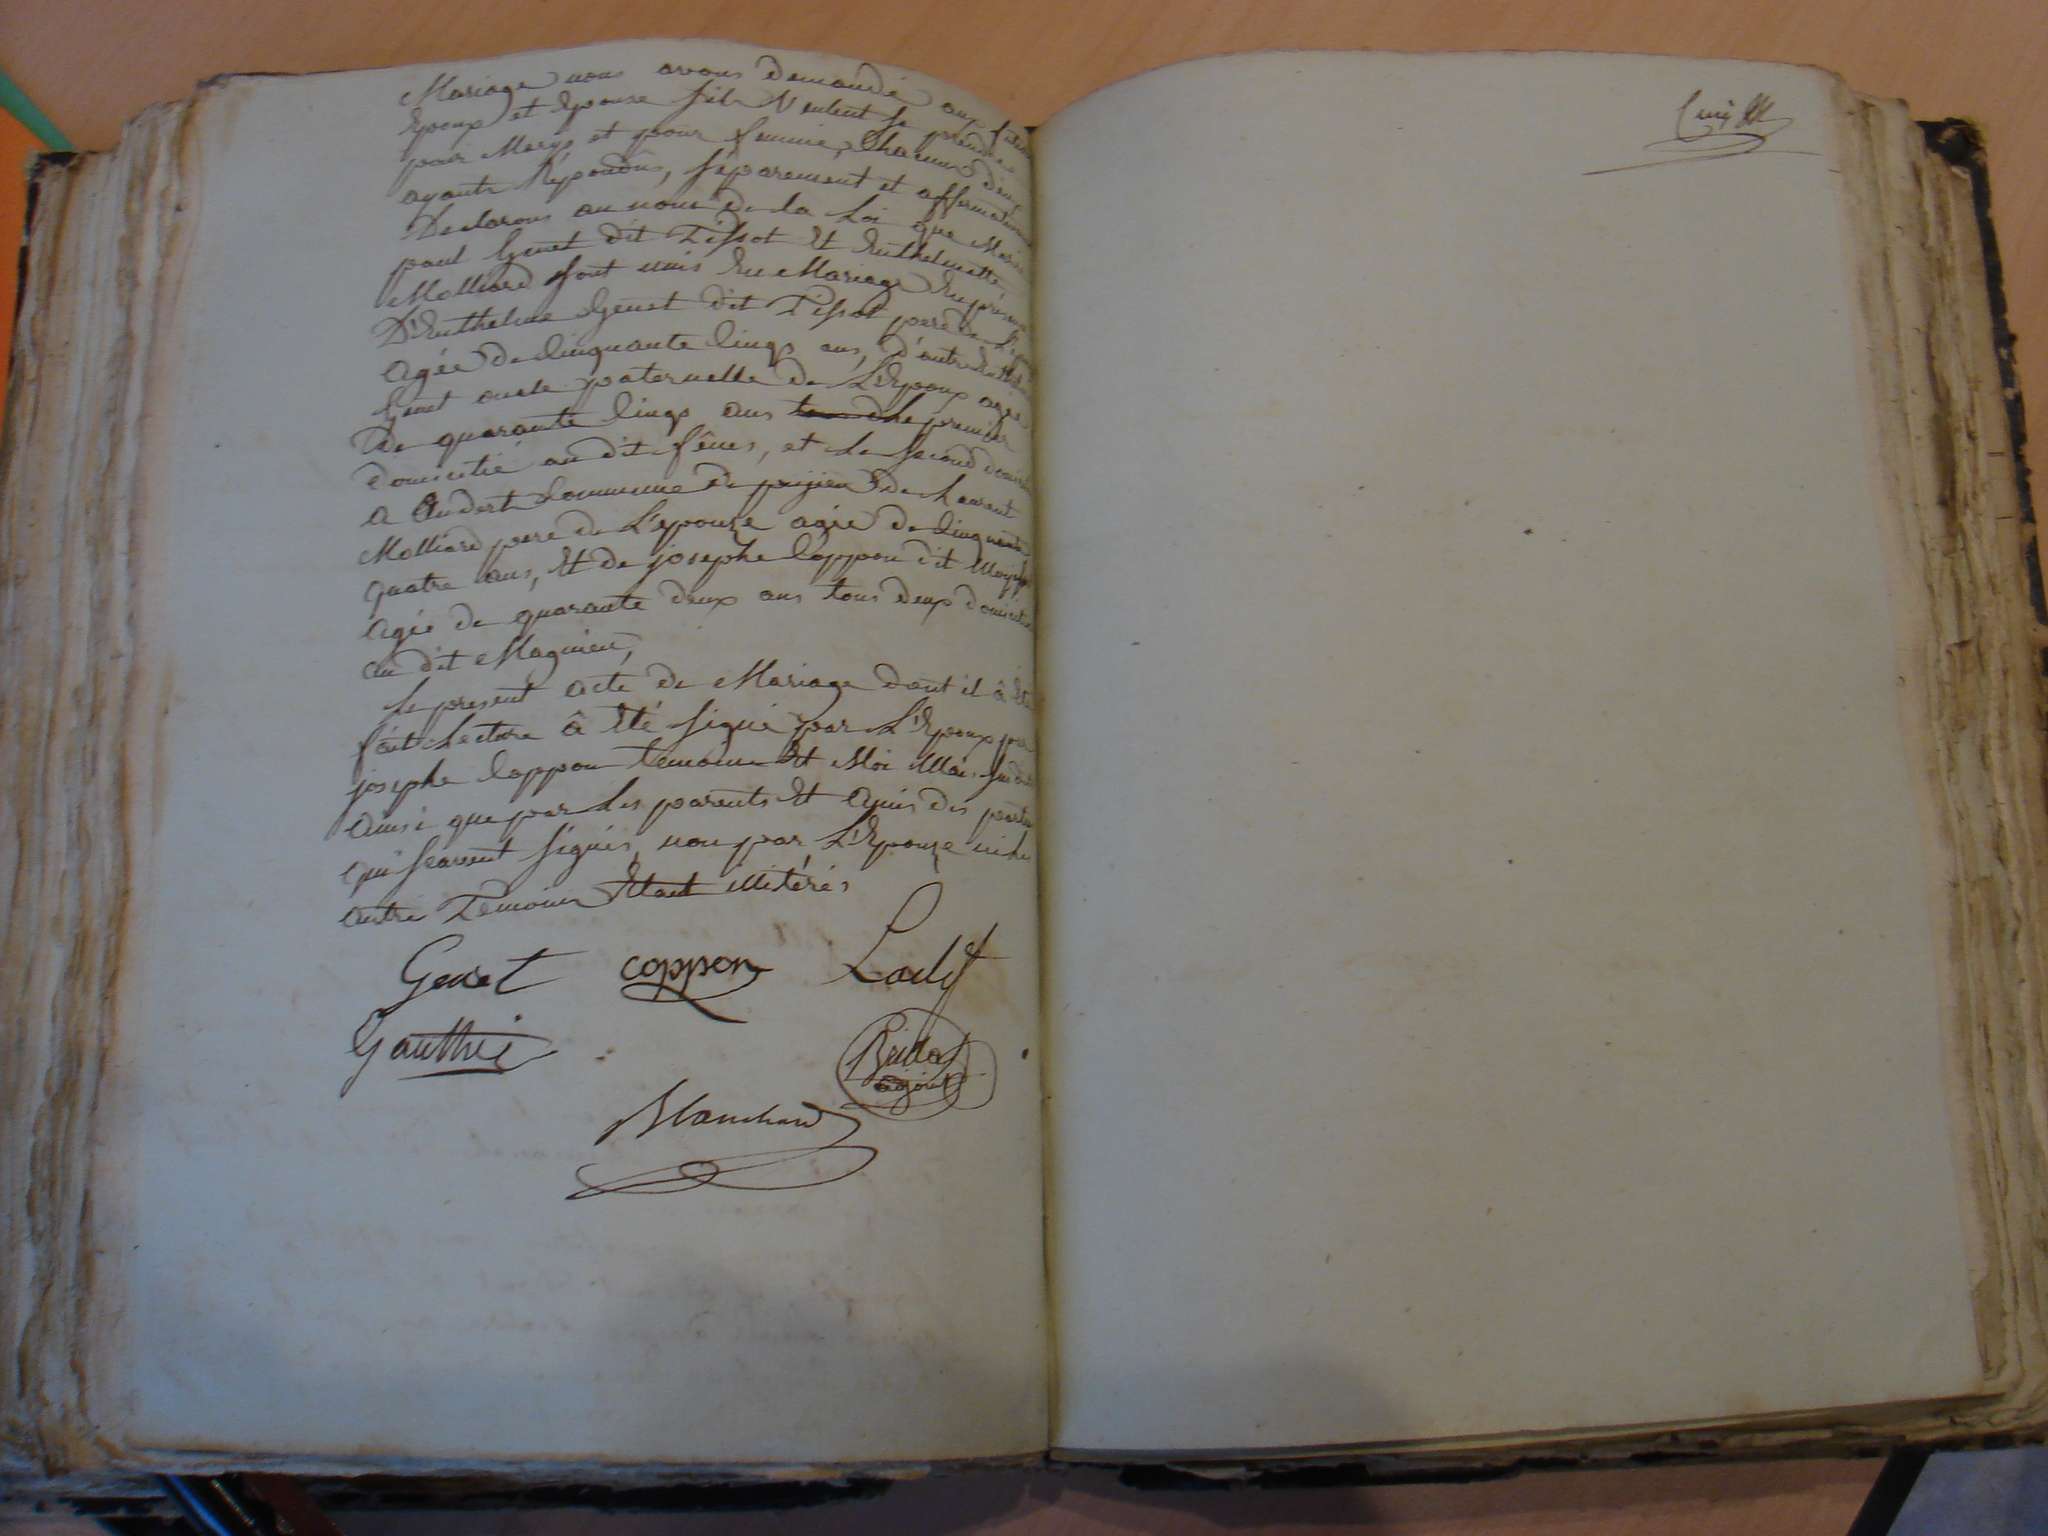 Mariage nous avons demandé aux futurs
Epoux et Epouse sils Veulent se prendre
pour Marys et pour femme, Chacun deux
ayants Répondus, séparement et affermativement
Declarons au nom de la Loi que Marie
paul Genet dit Tissot Et Enthelmette
Molliard sont unis En Mariage En présence
D'Enthelme Genet dit Tissot pere de L'Epoux
agée de Cinquante Cinqs ans, d'autre Enthelme
Genet oncle paternelle de L'Epoux agée
De quarante Cinqs ans Le premier
domicilié au dit fênes, et Le second domicilié
a Andert Commune de de Laurent
Molliard pere de L'epouse agée de Cinquante
quatre ans, Et de josephe Coppon dit
agée de quarante deux ans tous deux domicilié
au dit Magnieu,
Le present acte de Mariage dont il â Eté
fait Lecture â Eté signé par L'Epoux par
josephe Coppon temoins Et Moi Maire susdit
ainsi que par Les parents Et amis des parties
qui scavent signés, non par L'Epouse ni les
autre Temoins Etant illitérés
Genet coppon
Gauthie
adjoint
Blanchard